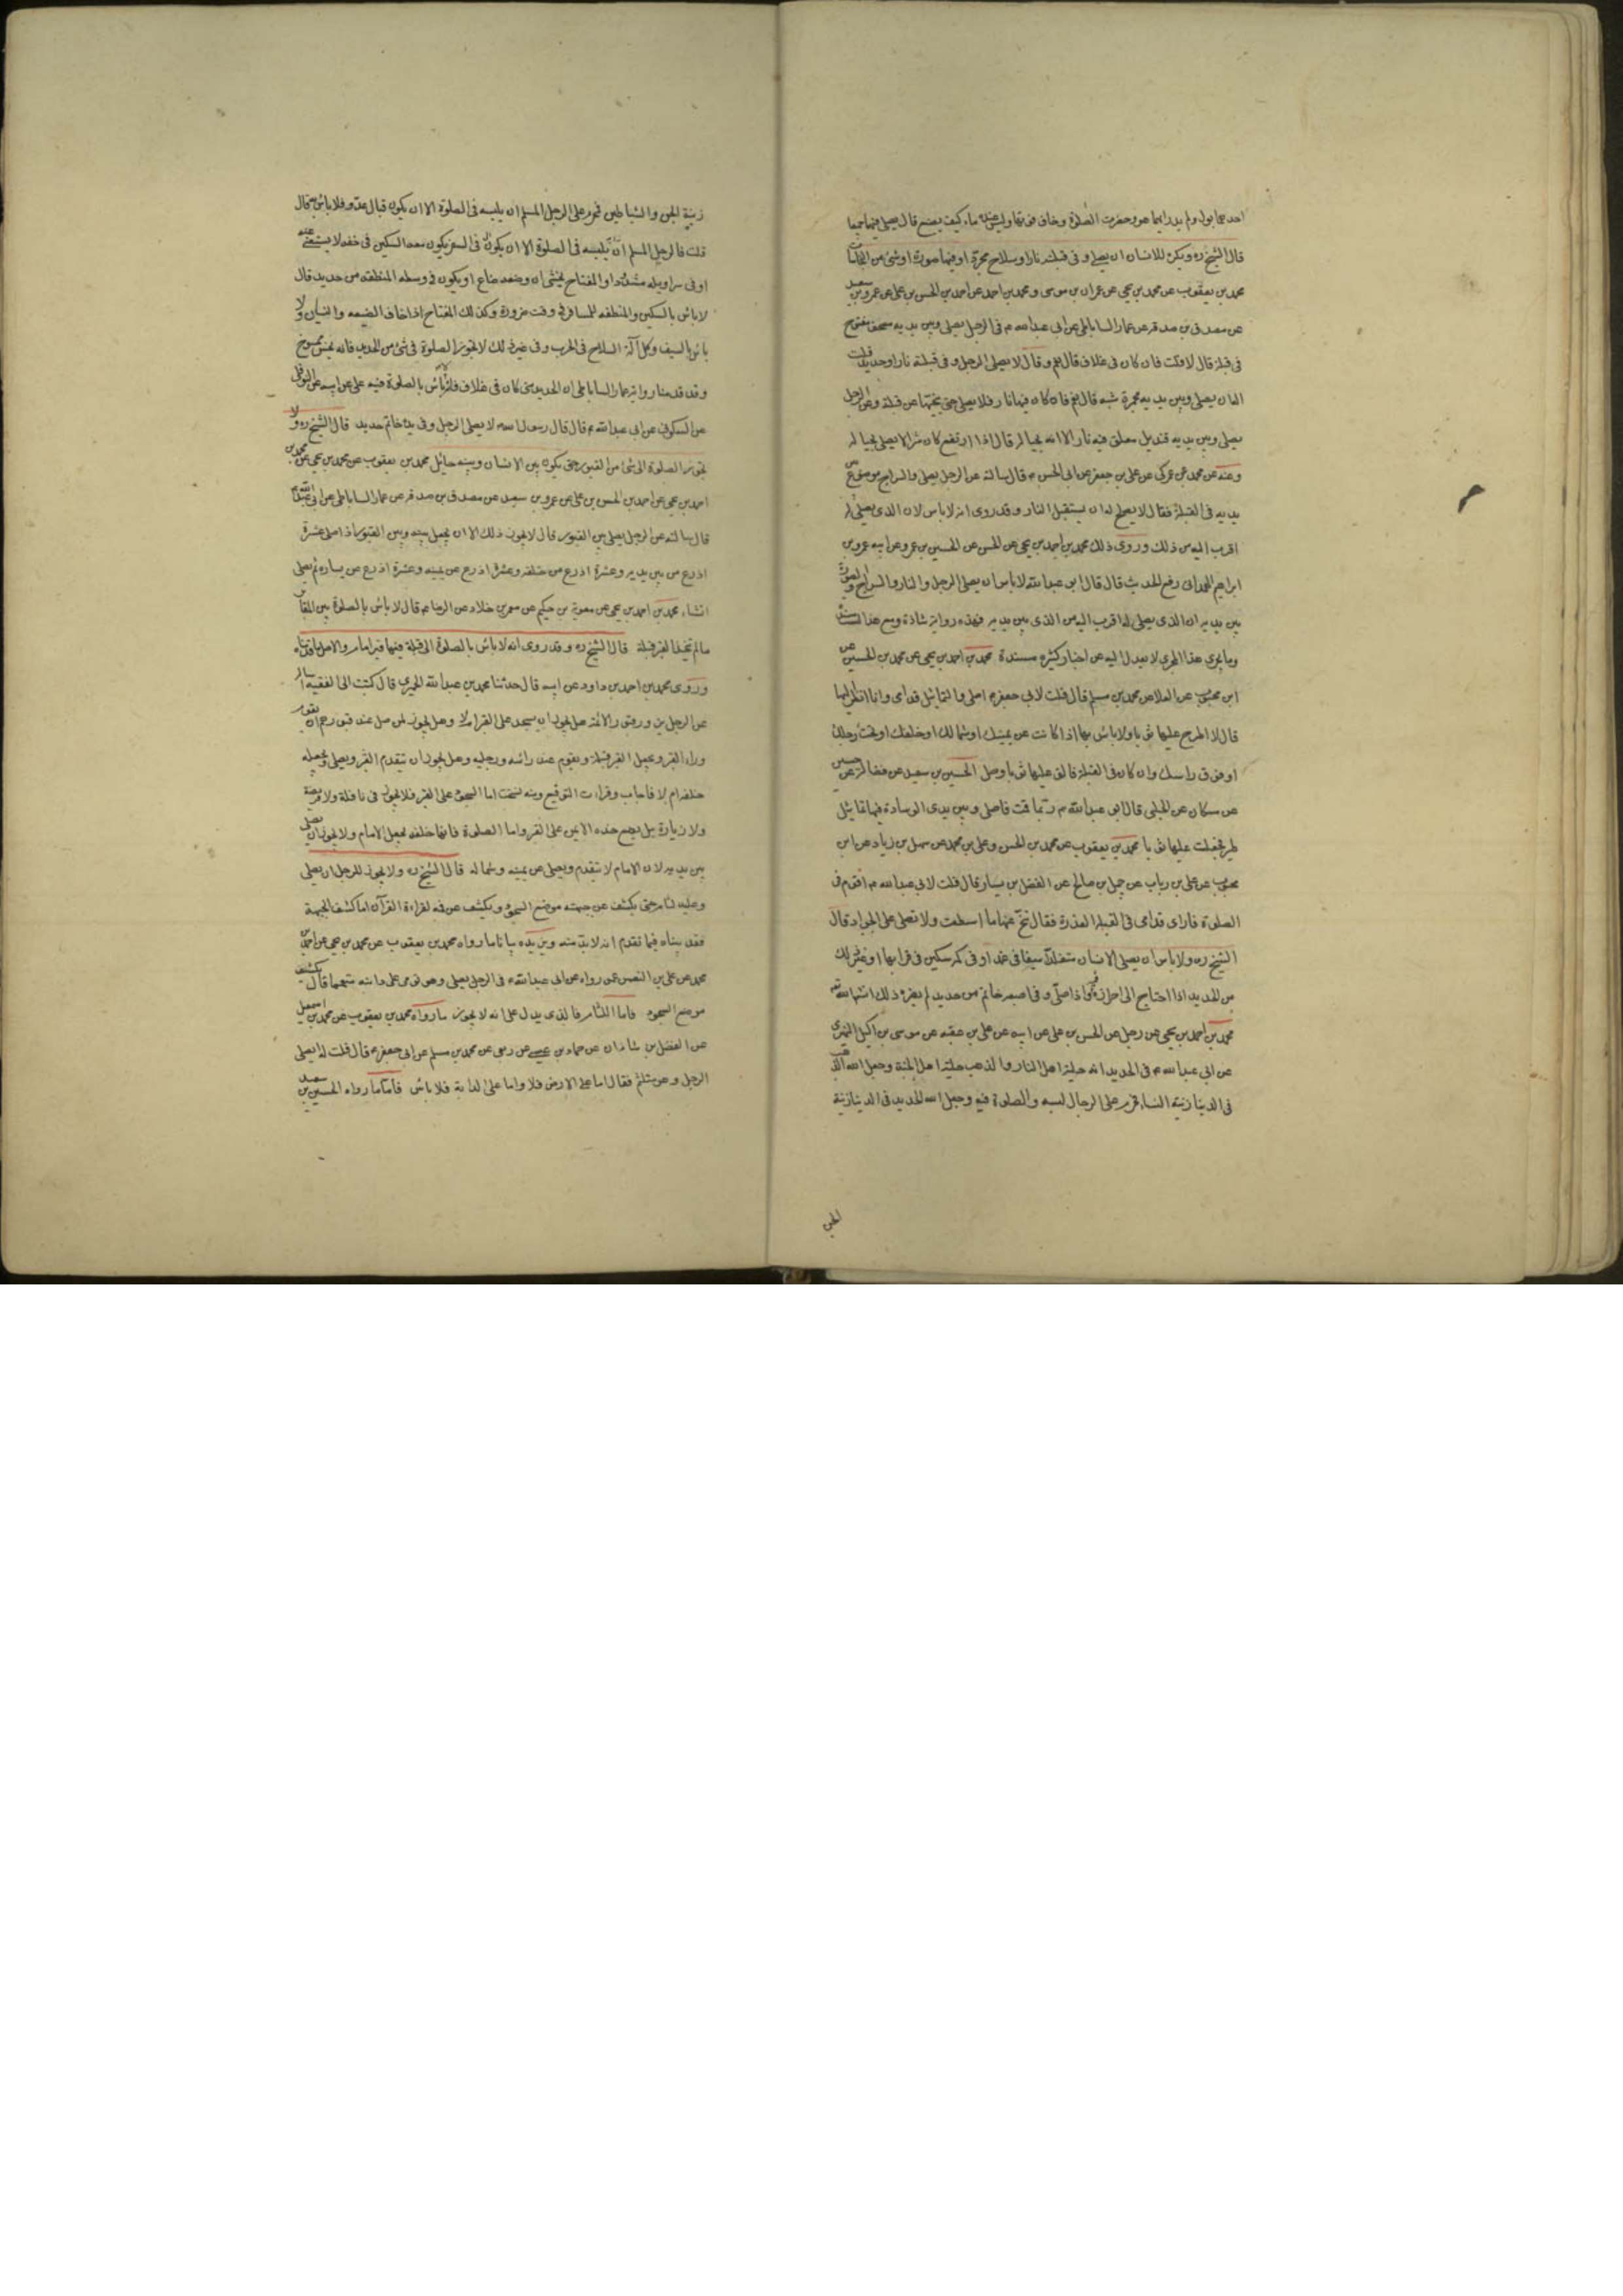 احدهما بول ولم يدر ايهما هو وحضرت الصلوة وخاف فوتها وليس عنده ماء كيف يصنع قال يصلى فيهما جميعا
قال الشيخ ره ويكره للانسان ان يصلى وفى قبلته نار او سلاح مجرد او فيها صورة او شئ من النجاسات
محمد بن يعقوب عن محمد بن يحيى عن عمران بن موسى ومحمد بن احمد عن احمد بن الحسن بن على عن عمرو بن سعيد
عن مصدق بن صدقه عن عمار الساباطى عن ابى عبد الله م فى الرجل يصلى وبين يديه مصحف مفتوح
فى قبلته قال لا قلت فان كان فى غلاف قال نعم وقال لا يصلى الرجل وفى قبلته نار او حديد قلت
اله ان يصلى وبين يديه مجمرة شبه قال نعم فان كان فيها نار فلا يصلى حتى ينحيها عن قبلته وعن الرجل
يصلى وبين يديه قنديل معلق فيه نار الا انه بحياله قال اذا ارتفع كان شرا لا يصلى بحياله
وعنه عن محمد عن العمركى عن على بن جعفر عن ابى الحسن م قال سالته عن الرجل يصلى والسراج موضوع بين
يديه فى القبلة فقال لا يصلح له ان يستقبل النار وقد روى انه لا باس لان الذى يصلى له
اقرب اليه من ذلك وروى ذلك محمد بن احمد بن يحيى عن الحسن عن الحسين بن عمرو عن ابيه عمرو بن
ابراهيم الهمدانى رفع الحديث قال قال ابو عبد الله لا باس ان يصلى الرجل والنار والسراج والصورة
بين يديه ان الذى يصلى له اقرب اليه من الذى بين يديه فهذه رواية شاذة ومع هذا ليست مسندة
وما يجرى هذا المجرى لا يعدل اليه عن اخبار كثيره مسندة محمد بن احمد بن يحيى عن محمد بن الحسين عن
ابن محبوب عن العلا عن محمد بن مسلم قال قلت لابى جعفر م اصلى والتماثيل قدامى وانا انظر اليها
قال لا اطرح عليها ثوبا ولا باس بها اذا كانت عن يمينك او شمالك او خلفك او تحت رجلك
او فوق راسك وان كان فى القبلة فالق عليها ثوبا وصل الحسين بن سعيد عن فضالة عن حسين
عن مسكان عن الحلبى قال ابو عبد الله م ربما قمت فاصلى وبين يدى الوسادة فيها تماثيل
طير فجعلت عليها ثوبا محمد بن يعقوب عن محمد بن الحسن وعلى بن محمد عن سهل بن زياد عن ابن
محبوب عن على بن رياب عن جميل بن صالح عن الفضل بن يسار قال قلت لابى عبد الله م اقوم فى
الصلوة فارى قدامى فى القبلة العذرة فقال تنح عنها ما استطعت ولا تصلى على الجواد قال
الشيخ ره ولا باس ان يصلى الانسان متقلدا سيفا فى غمده او فى كمه سكين فى قرابها او غير ذلك
من الحديد اذا احتاج الى احرازه فيه واذا صلى وفى اصبعه خاتم من حديد لم يضره ذلك انشاء الله
محمد بن احمد بن يحيى عن رجل عن الحسن بن على عن ابيه عن على بن عقبه عن موسى بن اكيل النميرى
عن ابى عبد الله م فى الحديد انه حلية اهل النار والذهب حلية اهل الجنة وجعل الله الذهب
فى الدنيا زينة النساء فحرم على الرجال لبسه والصلوة فيه وجعل الله الحديد فى الدنيا زينة
الجن
زينة الجن والشياطين فحرم على الرجل المسلم ان يلبسه فى الصلوة الا ان يكون قبال عدو فلا باس به قال
قلت فالرجل المسلم ان يلبسه فى الصلوة الا ان يكون فى السفر يكون معه السكين فى خفه لا يستغنى عنه
او فى سراويله مشدودا والمفتاح يخشى ان وضعه ضاع او يكون فى وسطه المنطقه من حديد قال
لا باس بالسكين والمنطقه للمسافر فى وقت ضرورة وكذلك المفتاح اذا خاف الضيعه والنسيان ولا
باس بالسيف وكل آلة السلاح فى الحرب وفى غير ذلك لا تجوز الصلوة فى شئ من الحديد فانه نجس ممسوخ
وقد قدمنا رواية عمار الساباطى ان الحديد متى كان فى غلاف فلا باس بالصلوة فيه على عن ابيه عن النوفلى
عن السكونى عن ابى عبد الله م قال قال رسول الله لا يصلى الرجل وفى يده خاتم حديد قال الشيخ ره ولا
تجوز الصلوة الى شئ من القبور حتى يكون بين الانسان وبينه حائل محمد بن يعقوب عن محمد بن يحيى عن محمد بن
احمد بن يحيى عن احمد بن الحسن بن على عن عمرو بن سعيد عن مصدق بن صدقه عن عمار الساباطى عن ابى عبد الله م
قال سالته عن الرجل يصلى بين القبور قال لا يجوز ذلك الا ان يجعل بينه وبين القبور اذا صلى عشرة
اذرع من بين يديه وعشرة اذرع من خلفه وعشرة اذرع عن يمينه وعشرة اذرع عن يساره ثم يصلى
انشاء محمد بن احمد بن يحيى عن معوية بن حكيم عن معمر بن خلاد عن الرضا م قال لا باس بالصلوة بين المقابر
ما لم يتخذ القبر قبلة قال الشيخ ره وقد روى انه لا باس بالصلوة الى قبلة فيها قبر امام والاصل ما قدمناه
وروى محمد بن احمد بن داود عن ابيه قال حدثنا محمد بن عبد الله الحميرى قال كتبت الى الفقيه اساله
عن الرجل يزور قبور الائمة هل يجوز ان يسجد على القبر ام لا وهل يجوز لمن صلى عند قبورهم ان يقوم
وراء القبر ويجعل القبر قبلة ويقوم عند راسه ورجليه وهل يجوز ان يتقدم القبر ويصلى ويجعله
خلفه ام لا فاجاب وقرات التوقيع ومنه نسخت اما السجود على القبر فلا يجوز فى نافلة ولا فريضة
ولا زيارة بل يضع خده الايمن على القبر واما الصلوة فانها خلفه يجعل الامام ولا يجوز ان يصلى
بين يديه لان الامام لا يتقدم ويصلى عن يمينه وشماله قال الشيخ ره ولا يجوز للرجل ان يصلى
وعليه لثام حتى يكشف عن جبهته موضع السجود ويكشف عن فيه لقراءة القرآن اما كشف الجبهة
فقد بيناه فيما تقدم انه لا بد منه ويزيده بيانا ما رواه محمد بن يعقوب عن محمد بن يحيى عن احمد بن
محمد عن على بن النعمن عمن رواه عن ابى عبد الله م فى الرجل يصلى وهو يومى على دابته متعمما قال يكشف
موضع السجود فاما اللثام فالذى يدل على انه لا يجوز ما رواه محمد بن يعقوب عن محمد بن اسمعيل
عن الفضل بن شاذان عن حماد بن عيسى عن ربعى عن محمد بن مسلم عن ابى جعفر م قال قلت له ايصلى
الرجل وهو متلثم فقال اما على الارض فلا واما على الدابة فلا باس فاما ما رواه الحسين بن سعيد